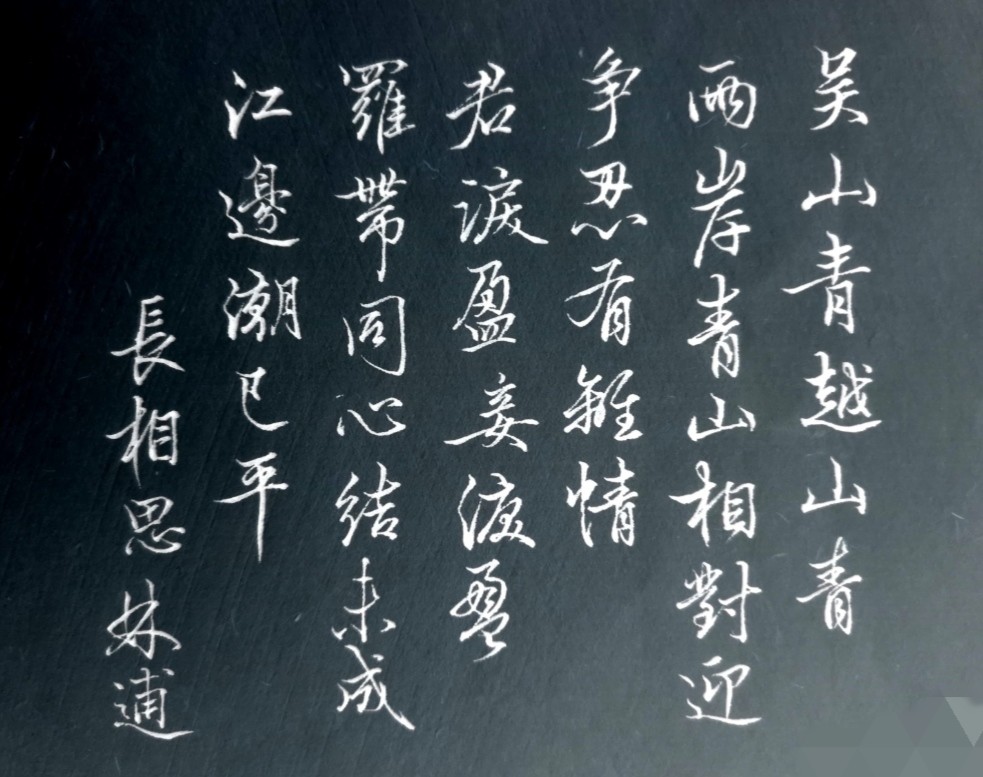 吴山青越山青
兩岸青山相對迎
争忍有離情
君淚盈妾淚盈
羅帶同心結未成
江邊潮已平
長相思 林逋